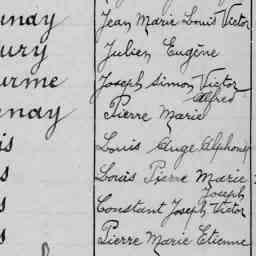 Jean Marie Louis Victor
Julien Eugène
Joseph Simon Victor
Alfred
Pierre Marie
Louis Ange Alphonse
Louis Pierre Marie
Joseph
Constant Joseph Victor
Pierre Marie Etienne